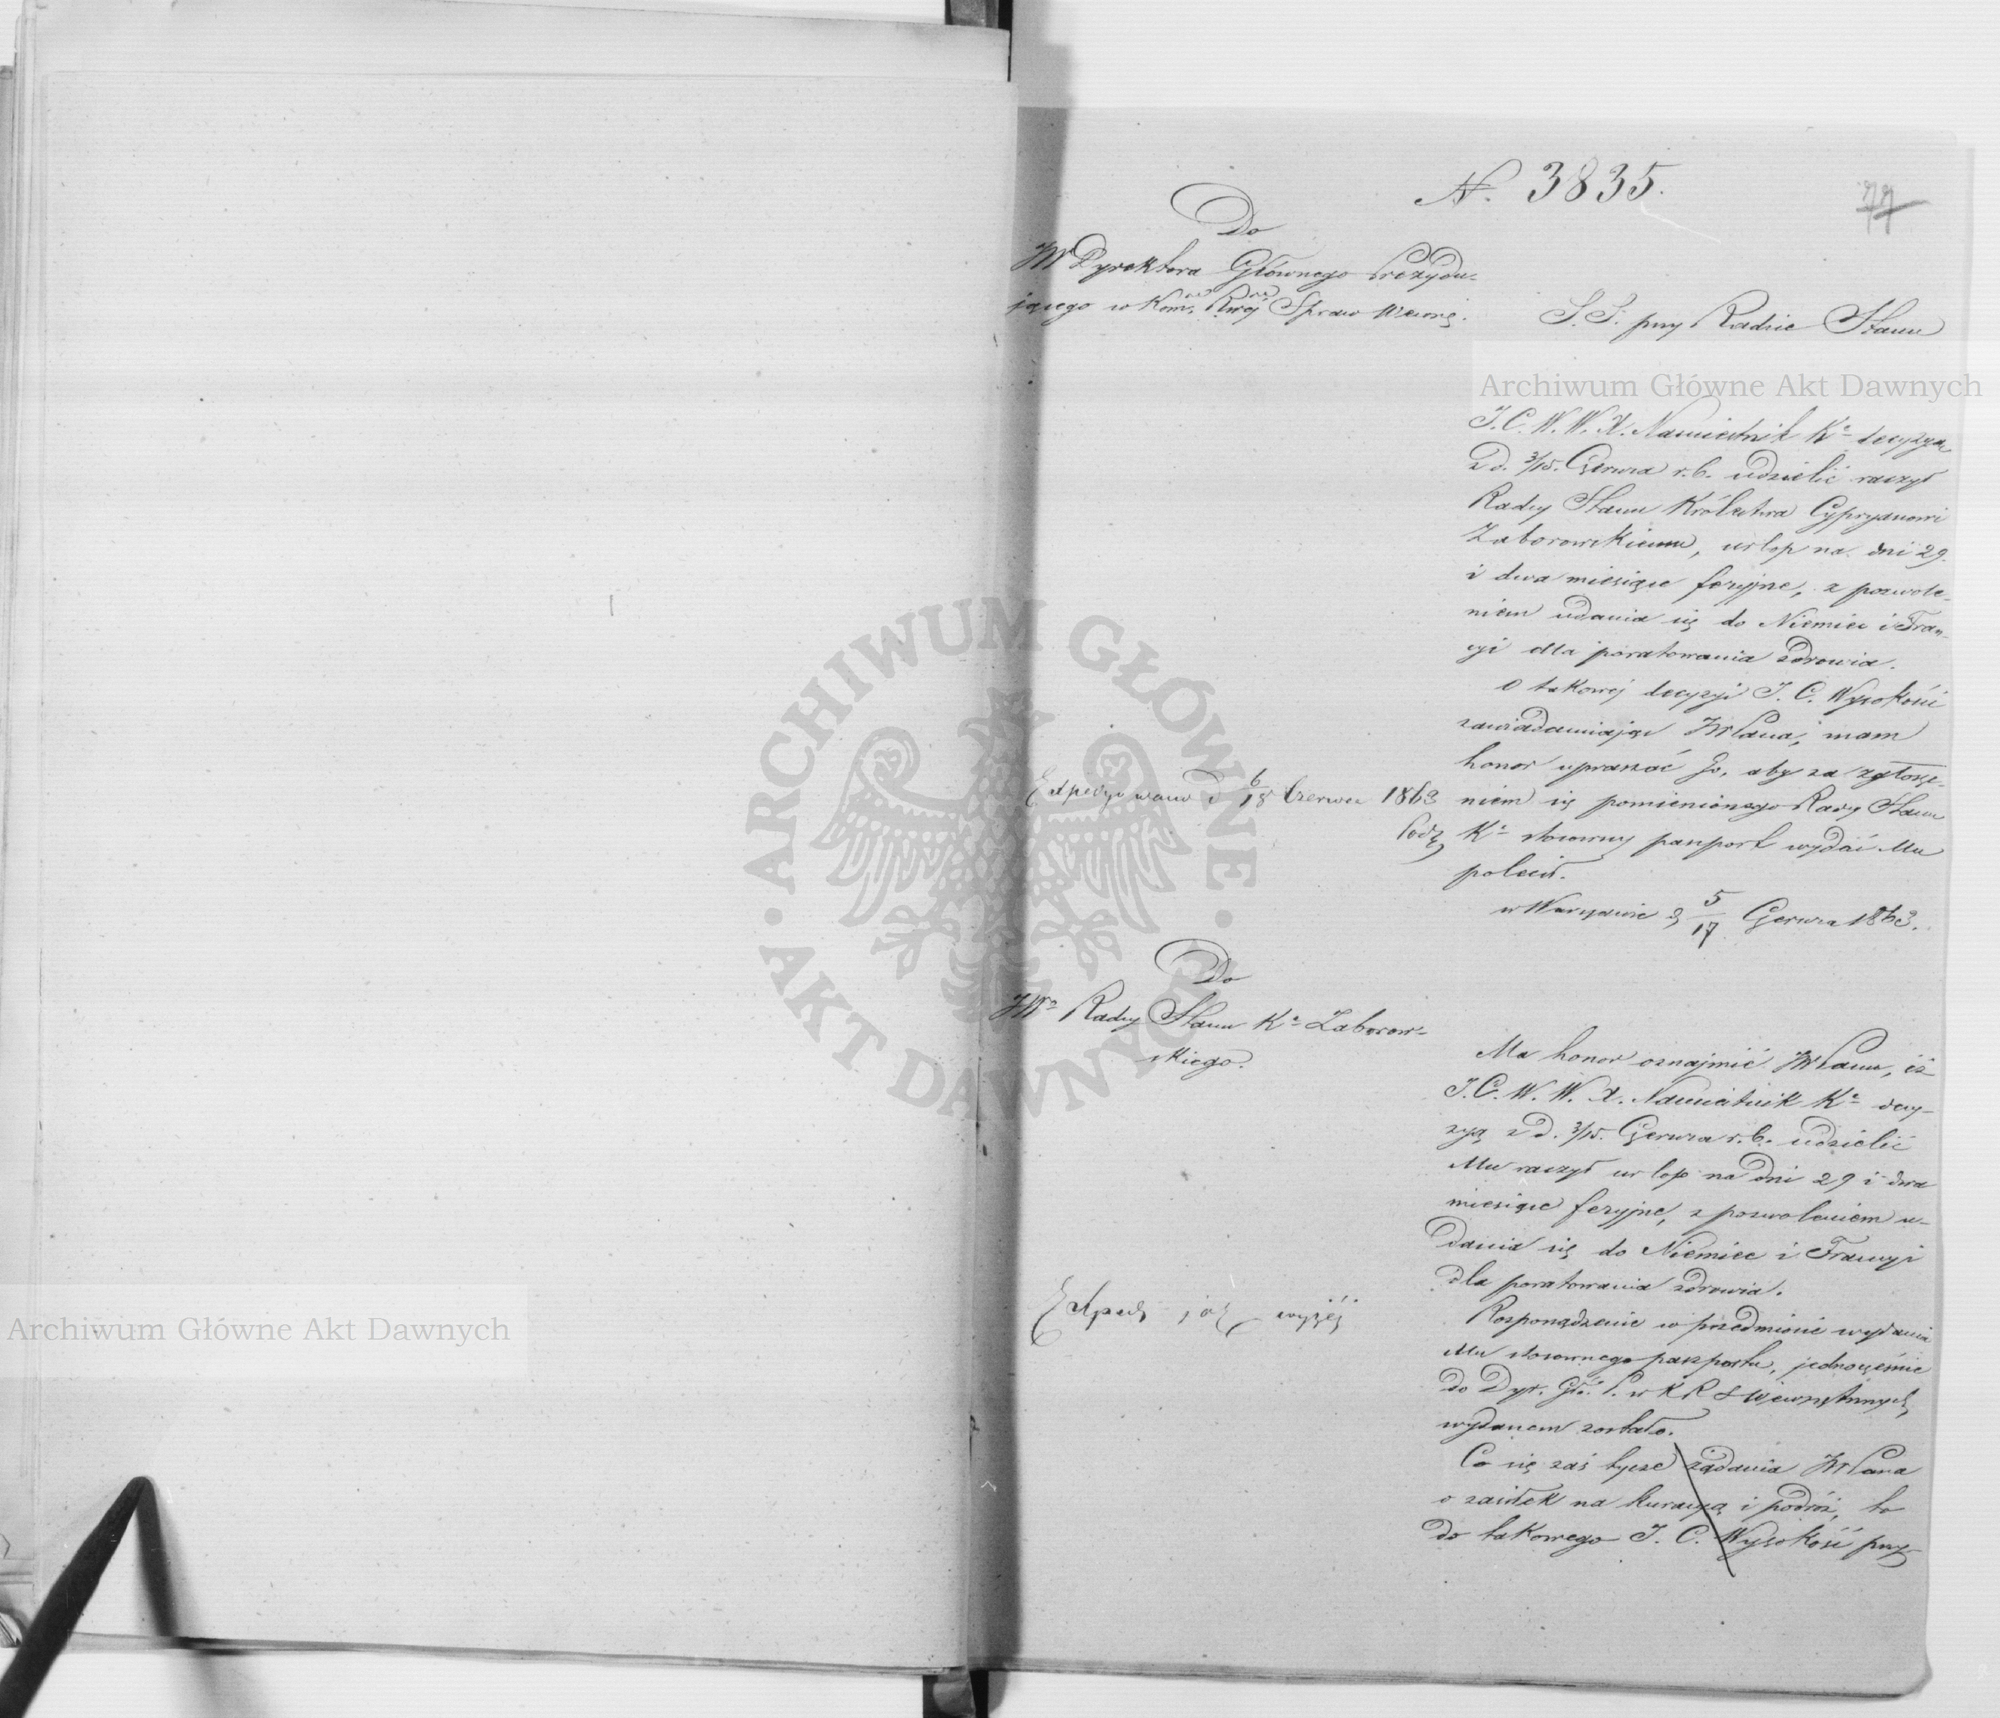 N. 3835.
77
Do
JW Dyrektora Głównego Prezydu-
jącego w Komi Rwéj Spraw Wewnę.
S. S. przy Radzie Stanu
J. C. W. W. X. Namiestnik Ka decyzyą
z d. 3/15. Czerwca r. b. udzielić raczył
Radcy Stanu Królestwa Cypryanowi
Zaborowskiemu, urlop na dni 29
i dwa miesiące feryjne, z pozwole-
niem udania się do Niemiec i Fran-
cyi dla poratowania zdrowia.
O takowéj decyzyi J. C. Wysokości
zawiadamiając JWPana, mam
honor upraszać Go, aby za zgłosze-
niem się pomienionego Radcy Stanu
Ka stosowny paszport wydać Mu
polecił.
w Warszawie d 5/17 Czerwca 1863.
Expedyowano d 6/18 Czerwca 1863
Do
JWo Radcy Stanu Ka Zaborow-
skiego.
Ma honor oznajmić JWPanu, iż
J. C. W. W. X. Namiestnik Ka decy-
zyą z d. 3/15. Czerwca r. b. udzielić
Mu raczył urlop na dni 29 i dwa
miesiące feryjne, z pozwoleniem u-
dania się do Niemiec i Francyi
dla poratowania zdrowia.
Rozporządzenie w przedmiocie wydania
Mu stosownego paszportu, jednocześnie
do Dyr. Głó. P. w K R S Wewnętrznych,
wydanem zostało.
Co się zaś tycze żądania JWPana
o zasiłek na kuracyą i podróż, to
do takowego J. C. Wysokość przy-
Exped jak wyżéj
Archiwum Główne Akt Dawnych
Archiwum Główne Akt Dawnych
ARCHIWUM GŁÓWNE AKT DAWNYCH